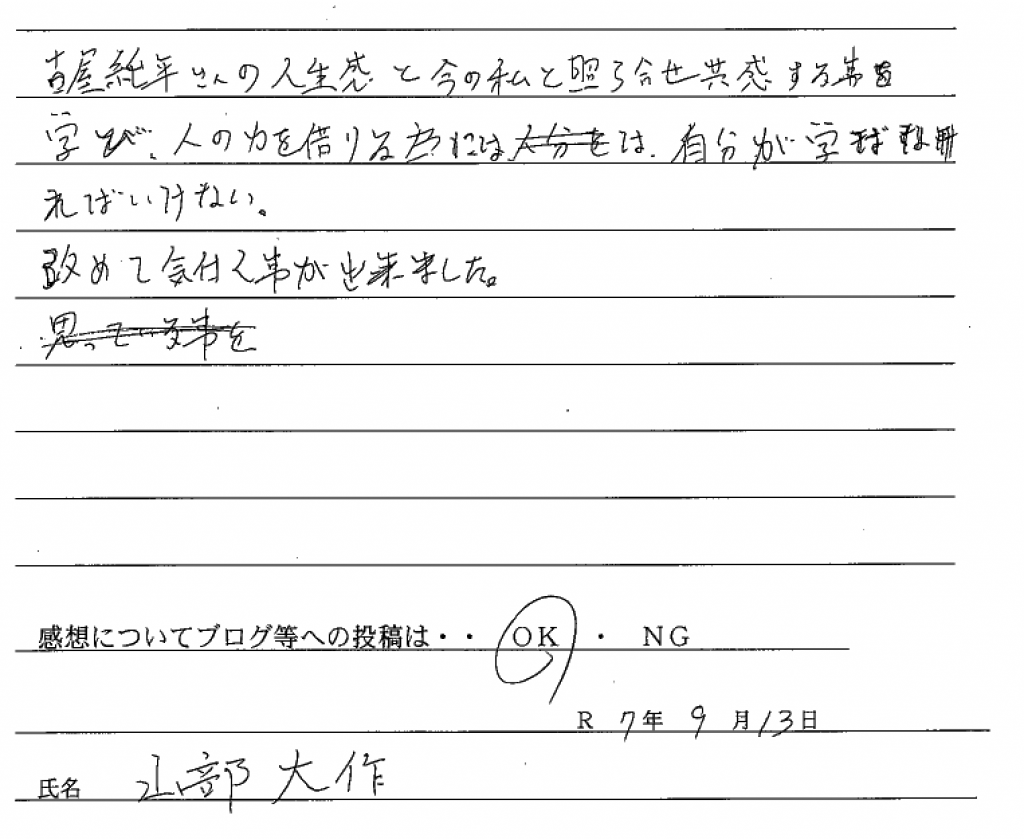 古屋純平さんの人生感と今の私と照らし合せ共感する事を
学び、人の力を借りる為には、自分が学ばなけ
ればいけない。
改めて気付く事が出来ました。
思っている事を
感想についてブログ等への投稿は・・ OK ・ NG
R 7年 9月13日
氏名 山部大作